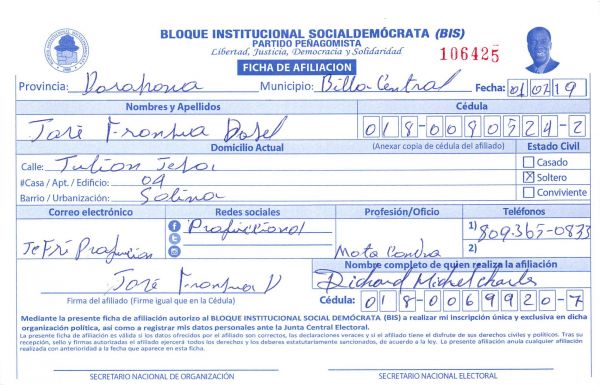 BLOQUE INSTITUCIONAL SOCIALDEMÓCRATA (BIS)
PARTIDO PEÑAGOMISTA
Libertad, Justicia, Democracia y Solidaridad
106425
FICHA DE AFILIACION
Provincia: Barahona Municipio: Billa Central Fecha: 01/07/19
Nombres y Apellidos Cédula
José 018-0080524-2
Domicilio Actual (Anexar copia de cédula del afiliado) Estado Civil
Calle: Casado
#Casa / Apt. / Edificio: 04 X Soltero
Barrio / Urbanización: Salina Conviviente
Correo electrónico Redes sociales Profesión/Oficio Teléfonos
1) 809-365-0833
2)
Moto Concho
Nombre completo de quien realiza la afiliación
José Richard Michel Charles
Firma del afiliado (Firme igual que en la Cédula) Cédula: 018-0069920-7
Mediante la presente ficha de afiliación autorizo al BLOQUE INSTITUCIONAL SOCIAL DEMÓCRATA (BIS) a realizar mi inscripción única y exclusiva en dicha
organización política, así como a registrar mis datos personales ante la Junta Central Electoral.
La presente ficha de afiliación es válida si los datos ofrecidos por el afiliado son correctos, las declaraciones veraces y si el afiliado tiene el disfrute de sus derechos civiles y políticos. Tras su
recepción, sello y firmas autorizadas el afiliado ejercerá todos los derechos y los deberes estatutariamente sancionados, de acuerdo a la ley. La presente afiliación anula cualquier afiliación
realizada con anterioridad a la fecha que aparece en esta ficha.
SECRETARIO NACIONAL DE ORGANIZACIÓN SECRETARIO NACIONAL ELECTORAL